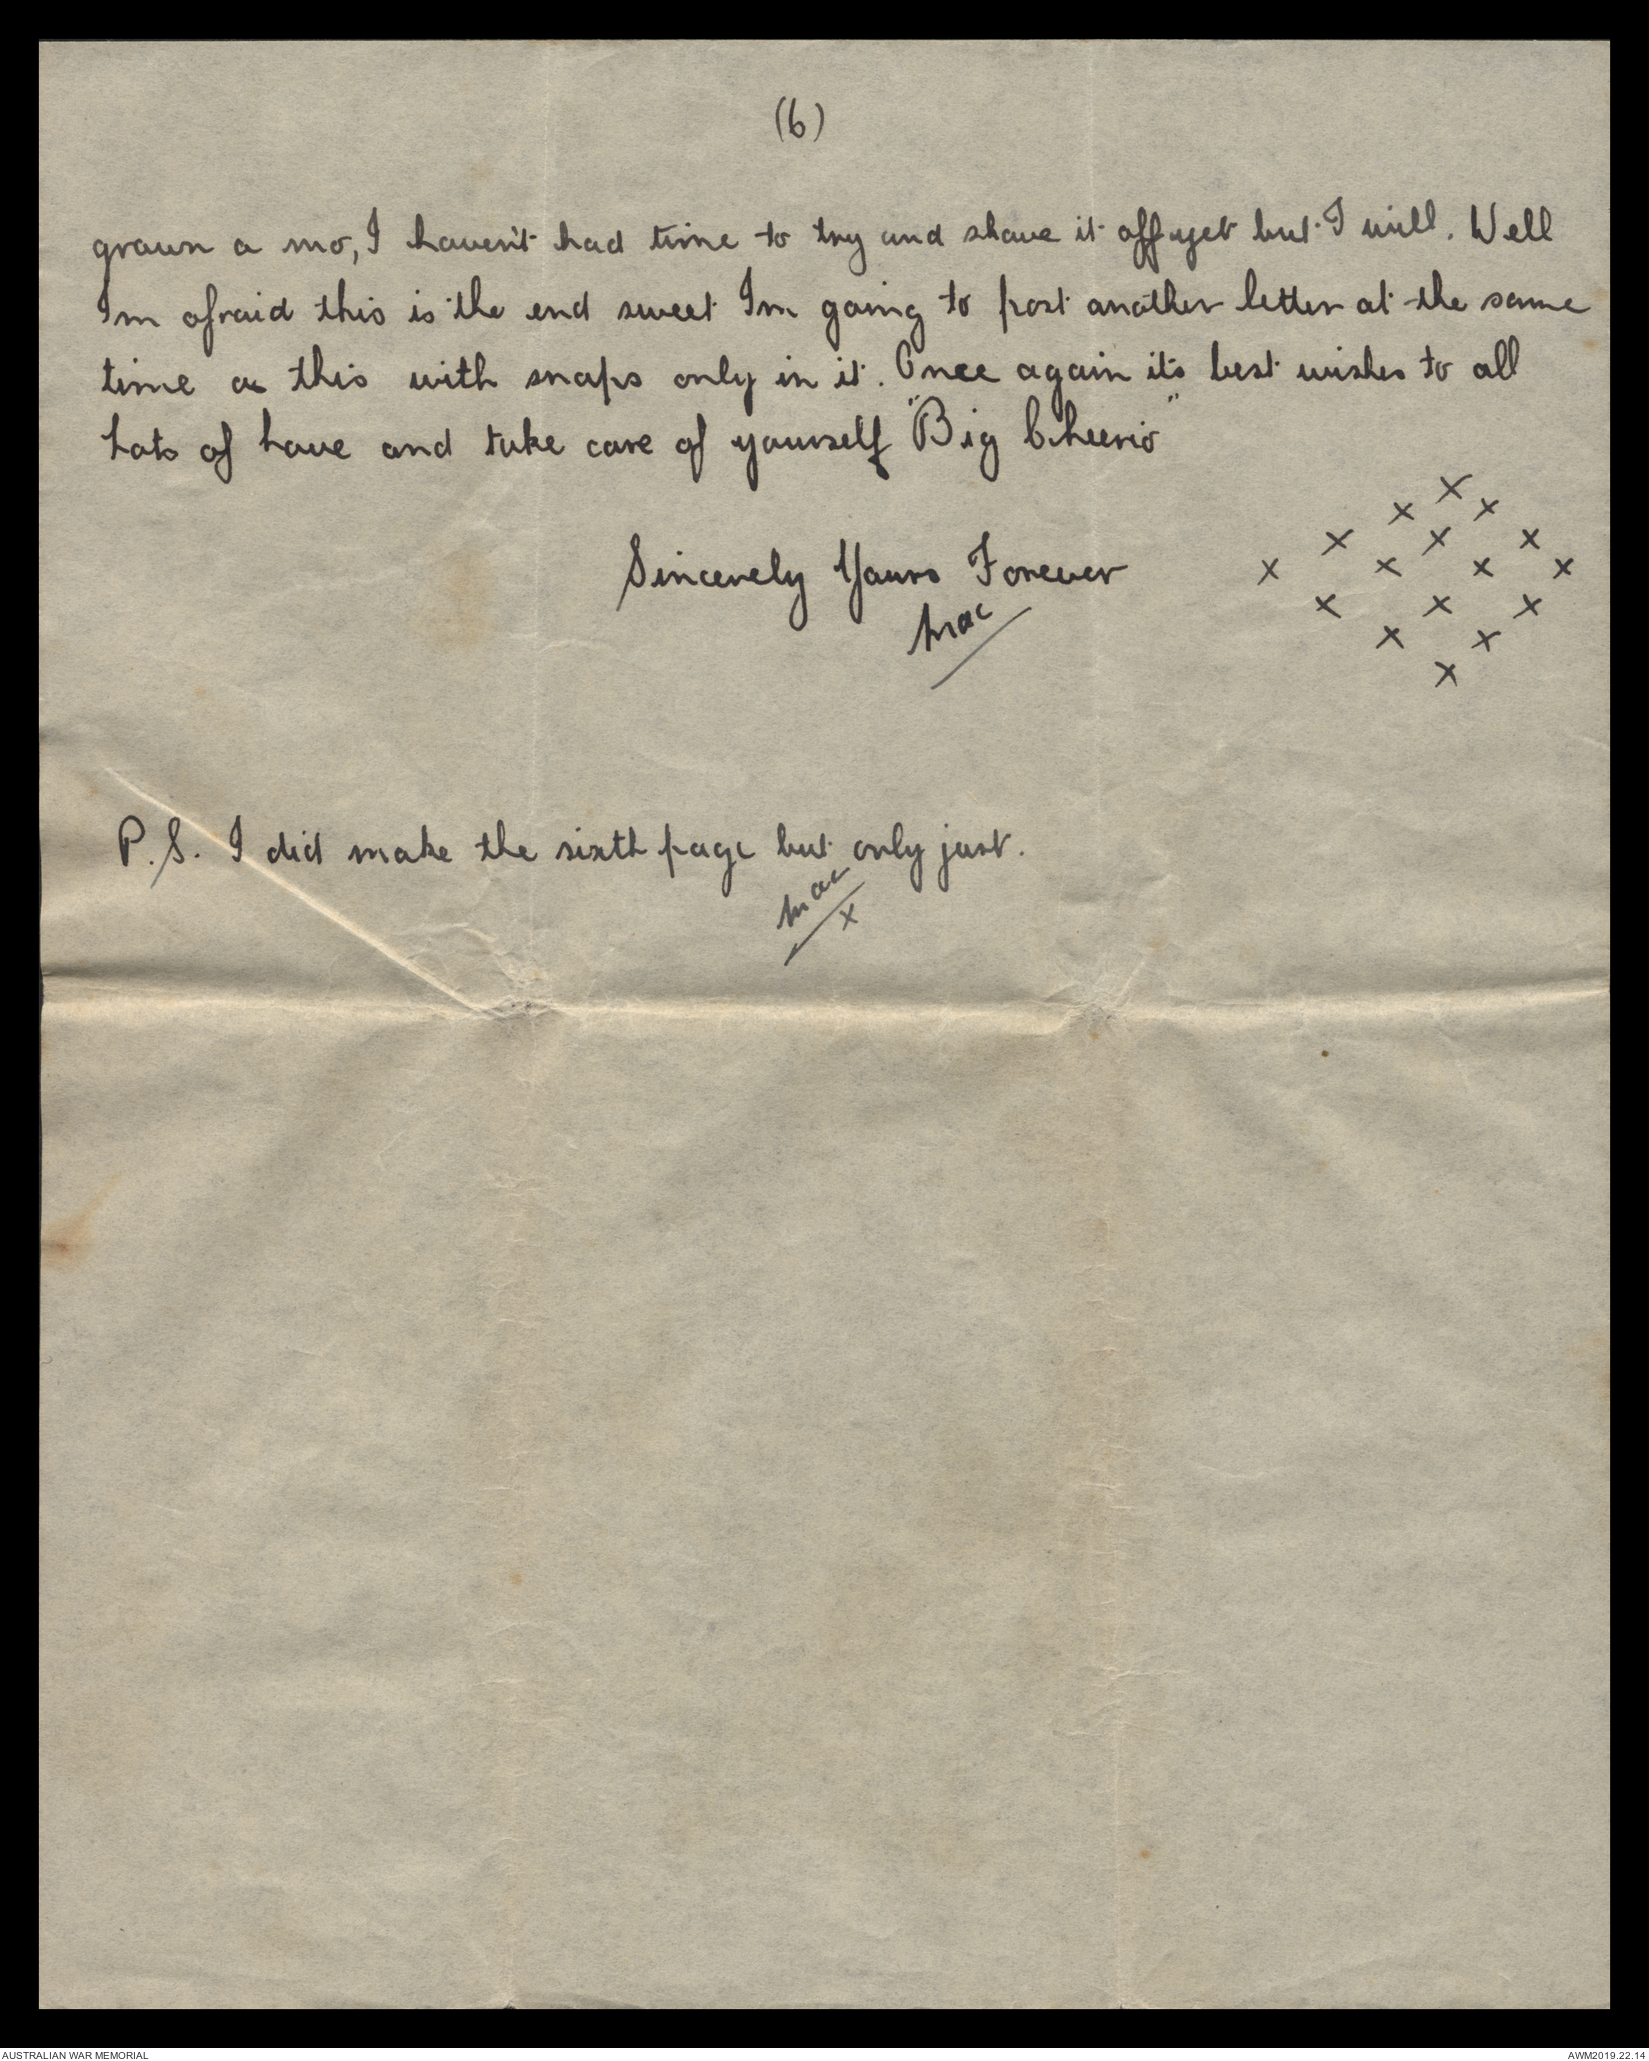 (6)
grown a mo, I haven't had time to try and shave it off yet but I will. Well
Im afraid this is the end sweet Im going to post another letter at the same
time as this with snaps only in it. Once again its best wishes to all
Lots of love and take care of yourself "Big Cheerio"
Sincerely Yours Forever
Mac
x
x x
x x x
x x x x
x x x
x x
x
P.S. I did make the sixth page but only just.
Mac
x
AUSTRALIAN WAR MEMORIAL AWM2019.22.14